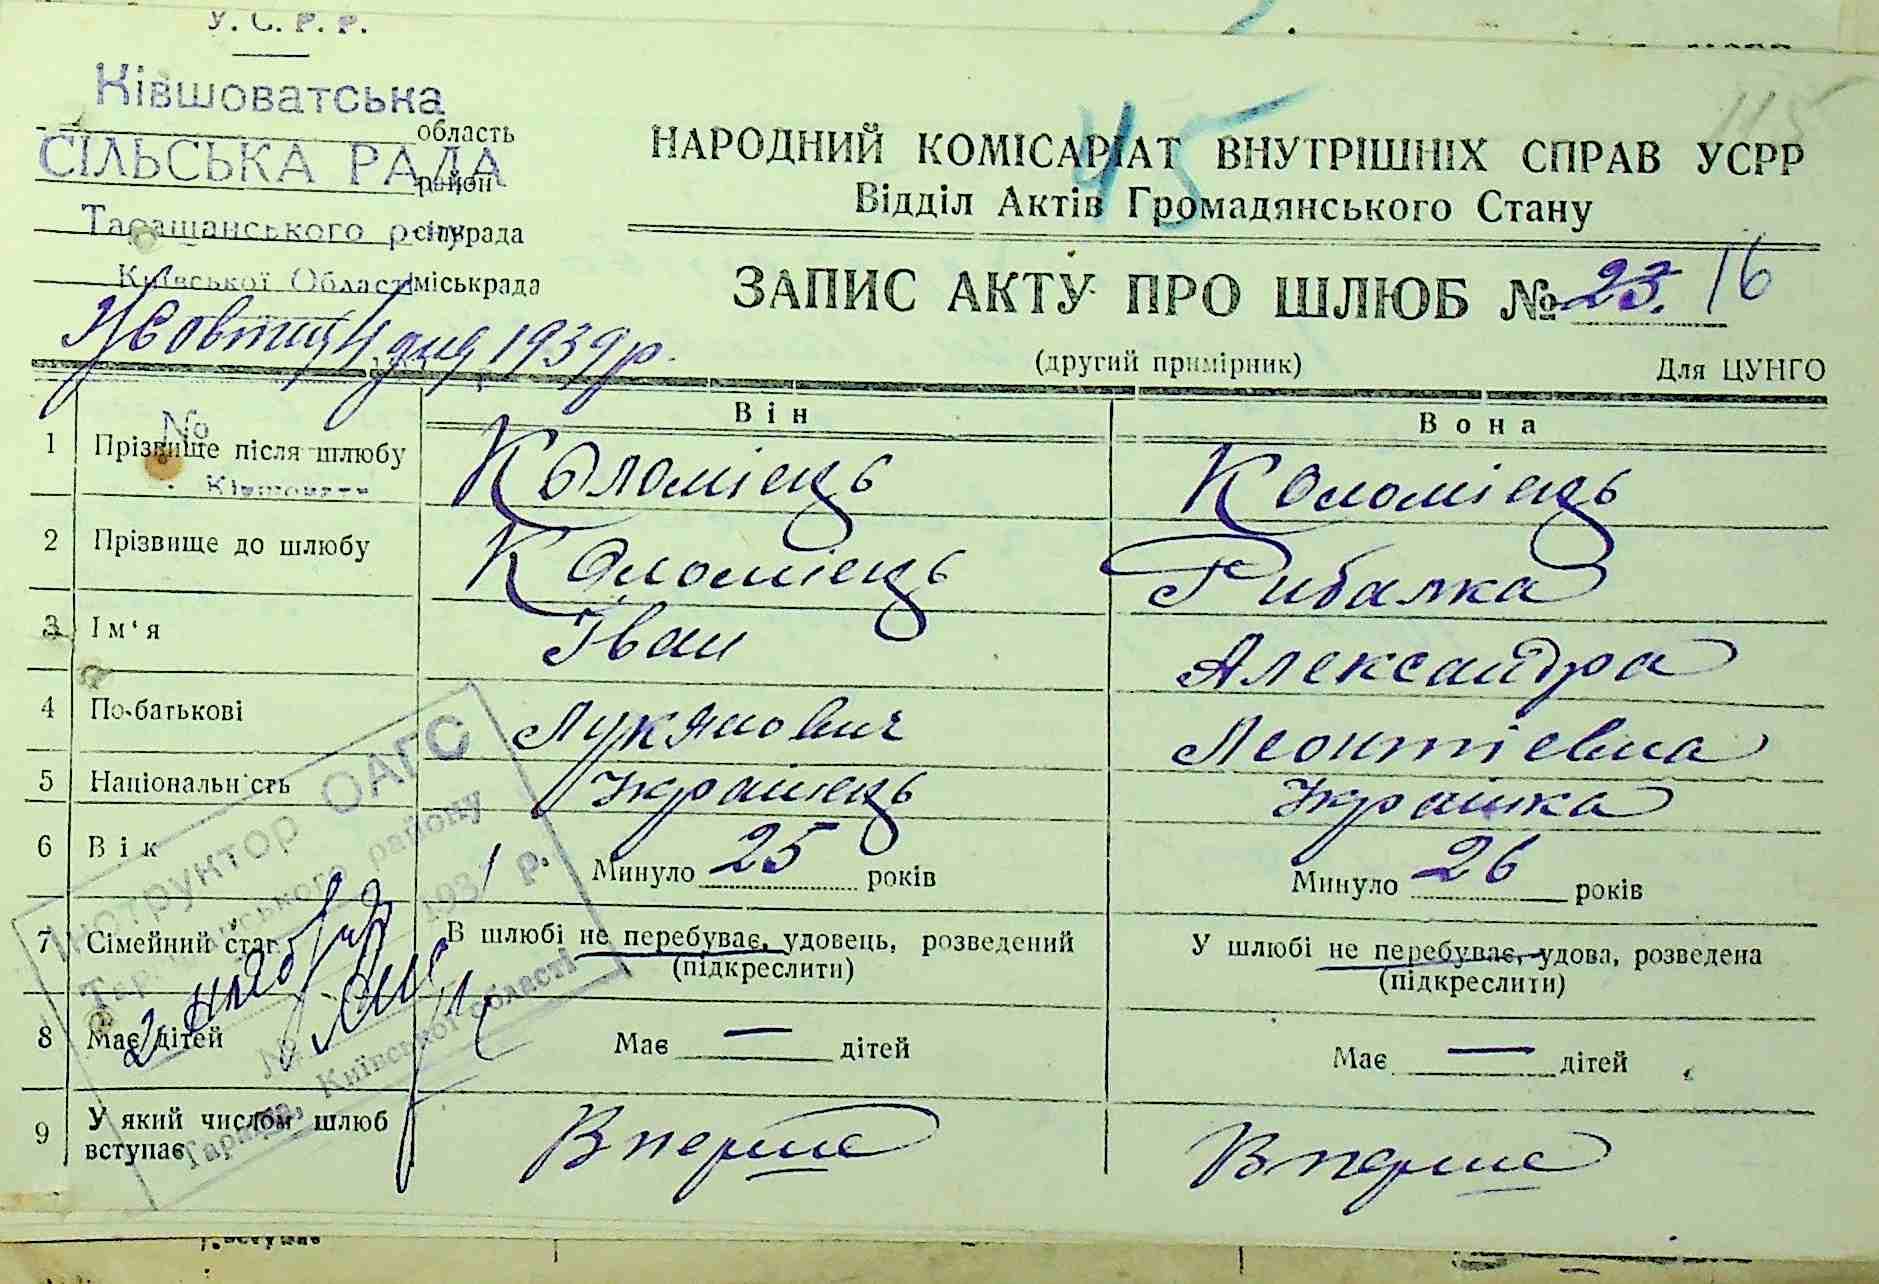 У. С. Р. Р.
Ківшоватська
область
СІЛЬСЬКА РАДА
район
Таращанського р-ну
сільрада
Київської Області
міськрада
Жовтня 4 дня 1939 р.
115
45
НАРОДНИЙ КОМІСАРІАТ ВНУТРІШНІХ СПРАВ УСРР
Відділ Актів Громадянського Стану
ЗАПИС АКТУ ПРО ШЛЮБ № 23. 16
(другий примірник)
Для ЦУНГО
Він
Вона
№
1 Прізвище після шлюбу Коломієць Коломієць
Ківшовата
2 Прізвище до шлюбу Коломієць Рибалка
3 Ім'я Іван Александра
4 По-батькові Лукянович Леонтієвна
5 Національність Українець Українка
6 Вік Минуло 25 років Минуло 26 років
7 Сімейний стан В шлюбі не перебуває, удовець, розведений У шлюбі не перебуває, удова, розведена
(підкреслити) (підкреслити)
8 Має дітей Має — дітей Має — дітей
9 У який числом шлюб вступає Вперше Вперше
Інструктор ОАГС
Таращанського району
193 р.
№
Київської області
Тараща,
вступає